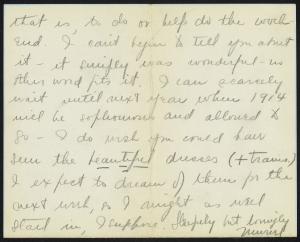 that is, to do or help do the work
End. I can't begin to tell you about
it - it simply was wonderful - us
this word fits it. I can scarcely
wait until next year when 1914
will be sophomores and allowed to
go - I do wish you could have
seen the beautiful dresses (+ trains)
I expect to dream of them for the
next week, so I might as well
start in, I suppose. Sleepily but lovingly
Muriel